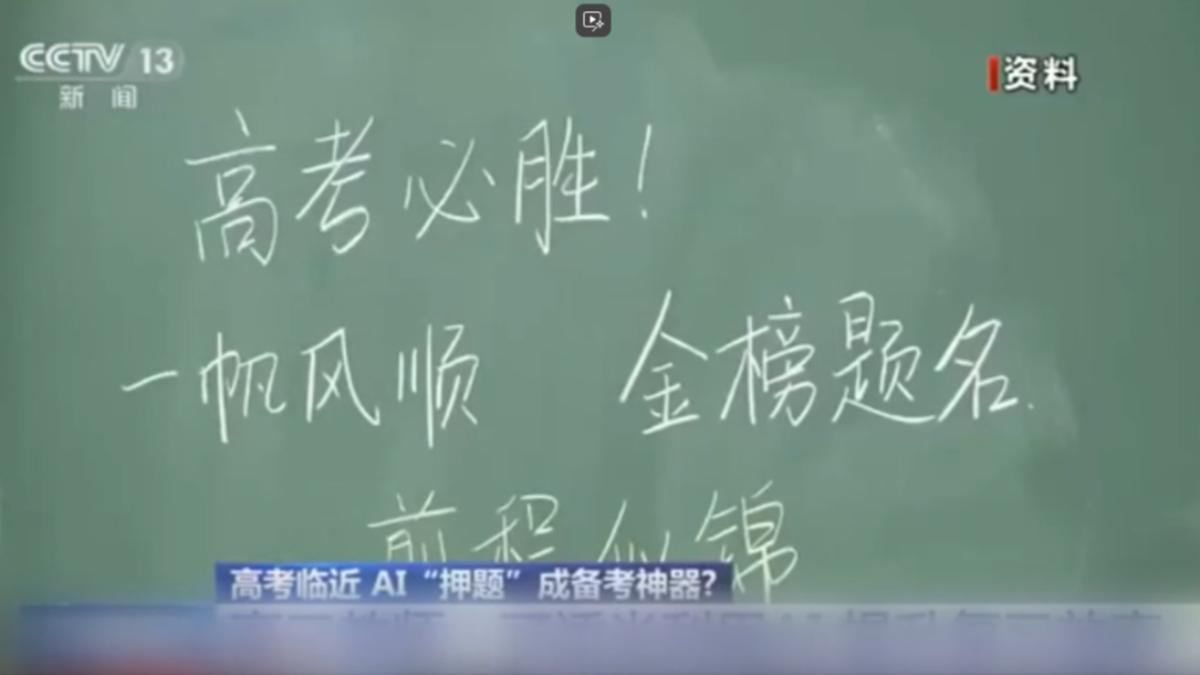 CCTV 13
新闻
资料
高考必胜!
一帆风顺 金榜题名.
前程似锦
高考临近 AI“押题”成备考神器?